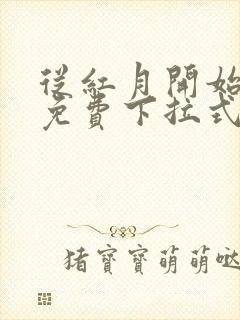 從紅月開始
免費下拉式
猪寶寶萌萌噠